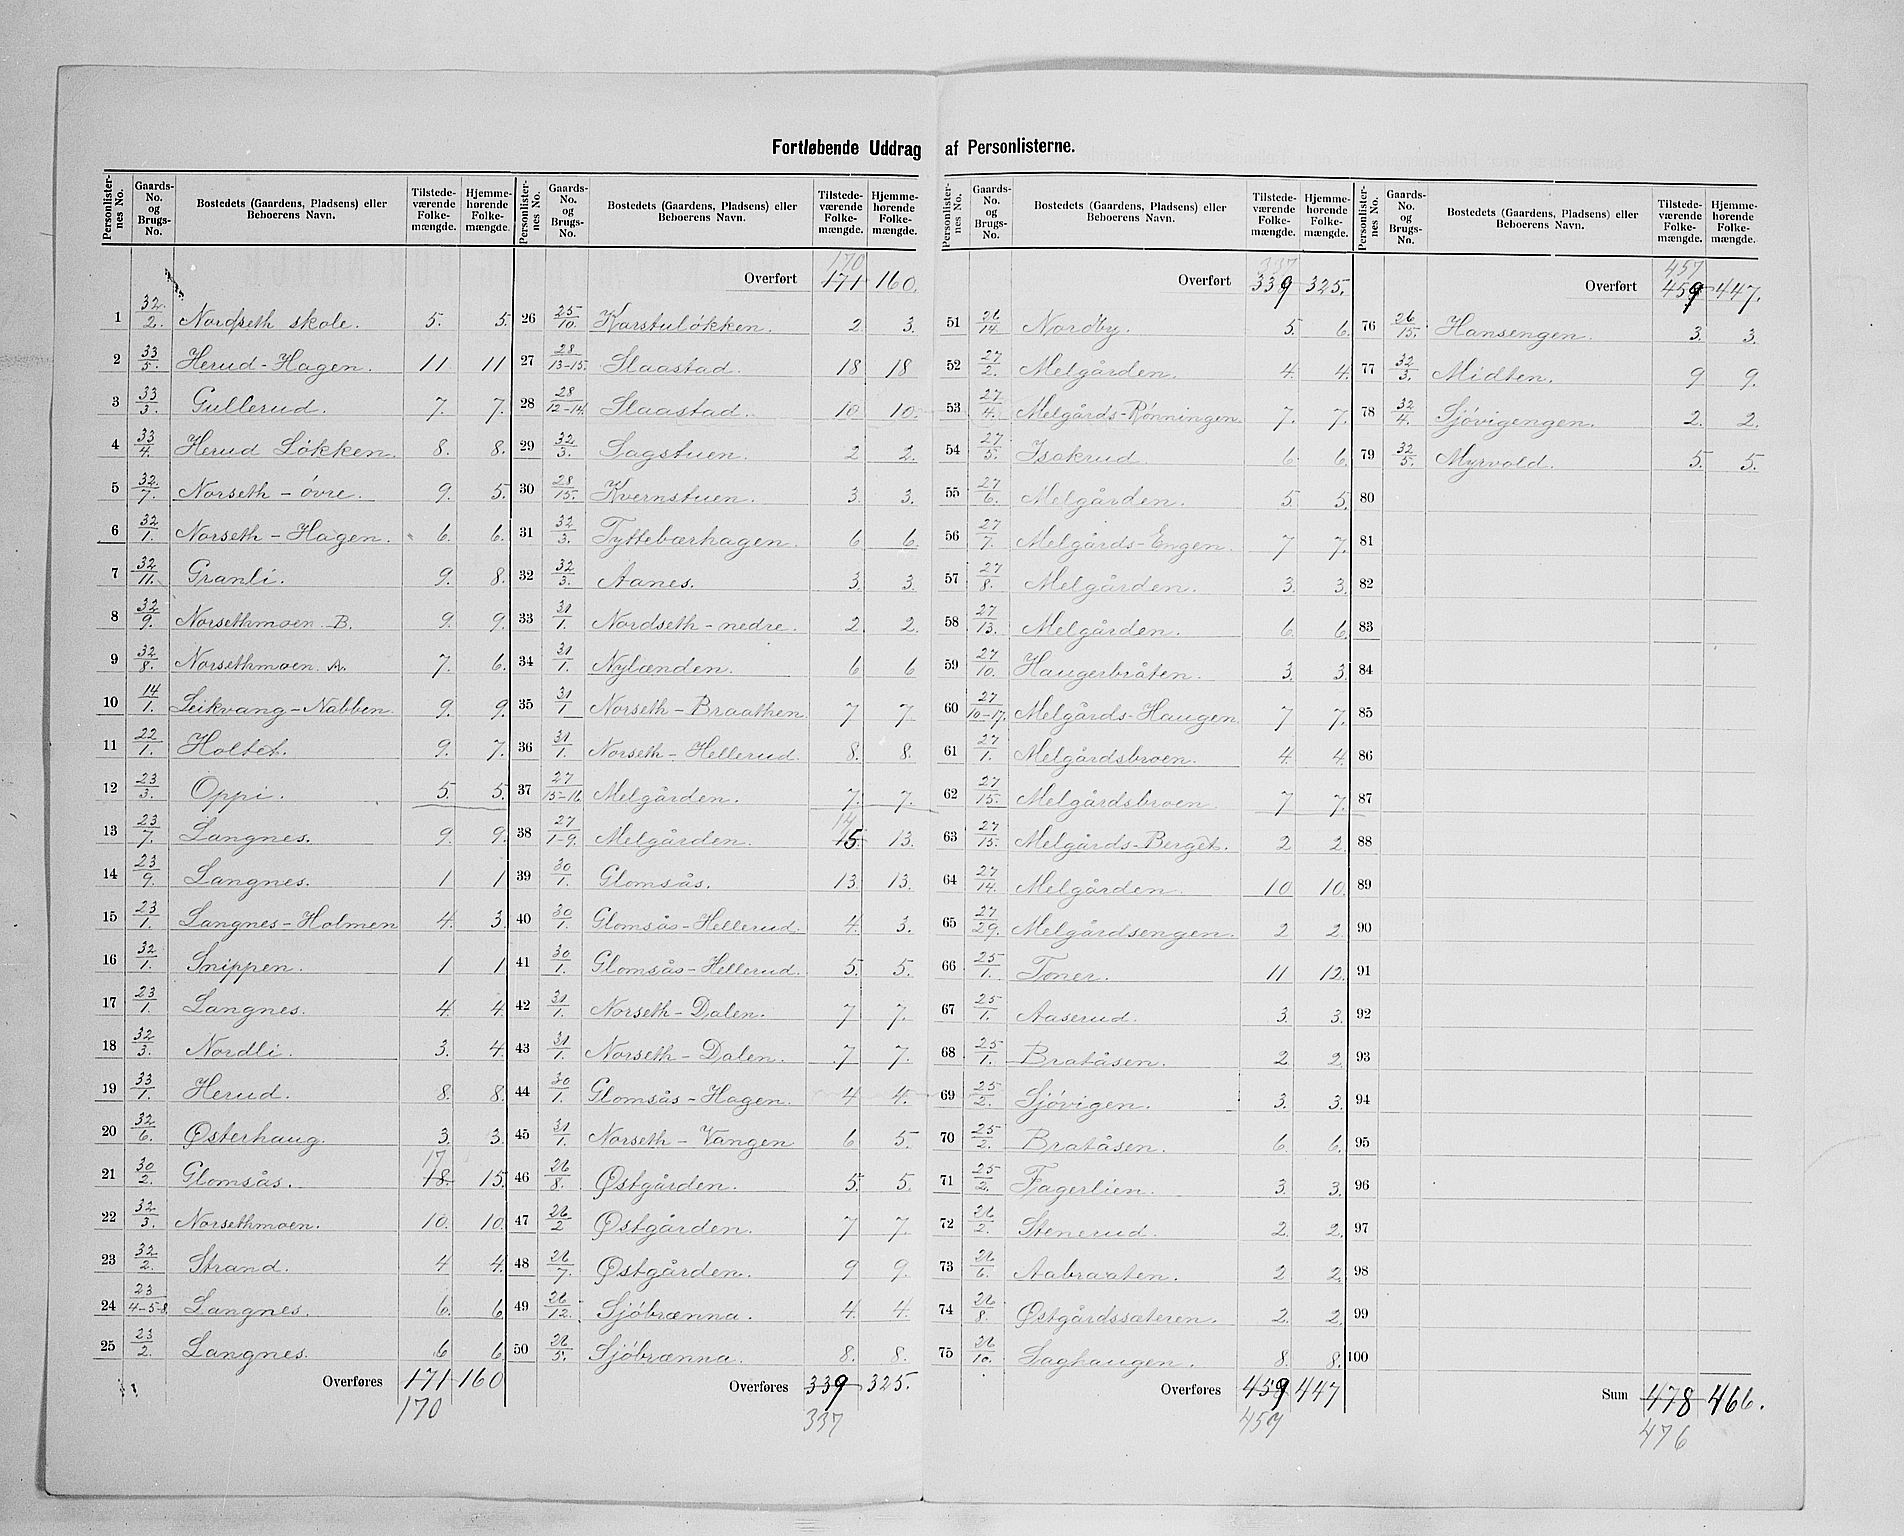 Fortløbende Uddrag af Personlisterne.
Personlister-nes No. | Gaards-No. og Brugs-No. | Bostedets (Gaardens, Pladsens) eller Beboerens Navn. | Tilstede-værende Folke-mængde. | Hjemme-hørende Folke-mængde.
1 32/2. Nordseth skole. 5. 5.
2 33/5. Herud-Hagen. 11. 11
3 33/3. Gullerud. 7. 7.
4 33/4. Herud Løkken. 8. 8.
5 32/7. Norseth - øvre. 9. 5.
6 32/1. Norseth - Hagen. 6. 6.
7 32/11. Granli. 9. 8.
8 32/9. Norsethmoen B. 9. 9.
9 32/8. Norsethmoen. A. 7. 6.
10 14/1. Leikvang-Nabben. 9. 9.
11 22/1. Holtet. 9. 7.
12 23/3. Oppi. 5. 5.
13 23/7. Langnes. 9. 9.
14 23/9. Langnes. 1 1
15 23/1. Langnes-Holmen 4. 3.
16 32/1. Snippen. 1 1
17 23/1. Langnes. 4. 4.
18 32/3. Nordli. 3. 4.
19 33/1. Herud. 8. 8.
20 32/6. Østerhaug. 3. 3.
21 30/2. Glomsås. 17 18. 15.
22 32/3. Norsethmoen. 10. 10.
23 32/2. Strand. 4 4.
24 23/4-5-8. Langnes. 6. 6
25 23/2. Langnes. 6 6
Overføres 171 160
170
Personlister-nes No. | Gaards-No. og Brugs-No. | Bostedets (Gaardens, Pladsens) eller Beboerens Navn. | Tilstede-værende Folke-mængde. | Hjemme-hørende Folke-mængde.
170
Overført 171 160.
26 25/10. Karstuløkken. 2 3.
27 28/13-15. Slaastad. 18 18
28 28/12-14. Slaastad. 10 10.
29 32/3. Sagstuen. 2 2.
30 28/15. Kvernstuen. 3. 3.
31 32/3. Tyttebærhagen. 6 6.
32 32/3. Aanes. 3. 3.
33 31/1. Nordseth - nedre. 2 2.
34 31/1. Nylænden. 6 6
35 31/1 Norseth - Braathen 7 7.
36 31/1. Norseth - Hellerud. 8. 8.
37 27/15-16. Melgården. 7. 7.
38 27/1-9. Melgården. 14 15. 13.
39 30/1. Glomsås. 13. 13.
40 30/1. Glomsås-Hellerud. 4. 3.
41 30/1. Glomsås-Hellerud. 5. 5.
42 31/1. Norseth - Dalen. 7 7.
43 31/1. Norseth - Dalen. 7 7.
44 30/1. Glomsås-Hagen. 4 4.
45 31/1. Norseth - Vangen 6 5.
46 26/8. Østgården. 5. 5.
47 26/2 Østgården. 7 7.
48 26/7. Østgården. 9 9.
49 26/12. Sjøbrænna. 4. 4.
50 26/5. Sjøbrænna. 8. 8.
Overføres 339 325.
337
Personlister-nes No. | Gaards-No. og Brugs-No. | Bostedets (Gaardens, Pladsens) eller Beboerens Navn. | Tilstede-værende Folke-mængde. | Hjemme-hørende Folke-mængde.
337
Overført 339 325.
51 26/14. Nordby. 5 6.
52 27/2. Melgården. 4. 4.
53 27/4. Melgårds-Rønningen. 7. 7.
54 27/5. Isakrud. 6 6.
55 27/6. Melgården. 5 5.
56 27/7. Melgårds-Engen. 7 7.
57 27/8. Melgården. 3. 3.
58 27/13. Melgården. 6. 6.
59 27/10. Haugerbråten. 3. 3.
60 27/10-17. Melgårds-Haugen. 7 7.
61 27/1. Melgårdsbroen. 4 4.
62 27/15. Melgårdsbroen. 7 7.
63 27/15. Melgårds-Berget. 2 2.
64 27/14. Melgården. 10 10.
65 27/29. Melgårdsengen. 2 2.
66 25/1. Toner. 11 12.
67 25/1. Aaserud. 3. 3.
68 25/1. Bratåsen. 2 2.
69 25/2. Sjøvigen. 3. 3.
70 25/2. Bratåsen. 6. 6.
71 25/2. Fagerlien. 3. 3.
72 26/2. Stenerud. 2. 2.
73 26/6. Aabraaten. 2 2.
74 26/8. Østgårdssæteren. 2. 2.
75 26/10. Saghaugen. 8. 8.
Overføres 459 447
459
Personlister-nes No. | Gaards-No. og Brugs-No. | Bostedets (Gaardens, Pladsens) eller Beboerens Navn. | Tilstede-værende Folke-mængde. | Hjemme-hørende Folke-mængde.
457
Overført 459 447.
76 26/15. Hansengen. 3. 3.
77 32/3. Midten. 9 9.
78 32/4. Sjøvigengen. 2. 2.
79 32/5. Myrvold. 5. 5.
80
81
82
83
84
85
86
87
88
89
90
91
92
93
94
95
96
97
98
99
100
Sum 478 466.
476